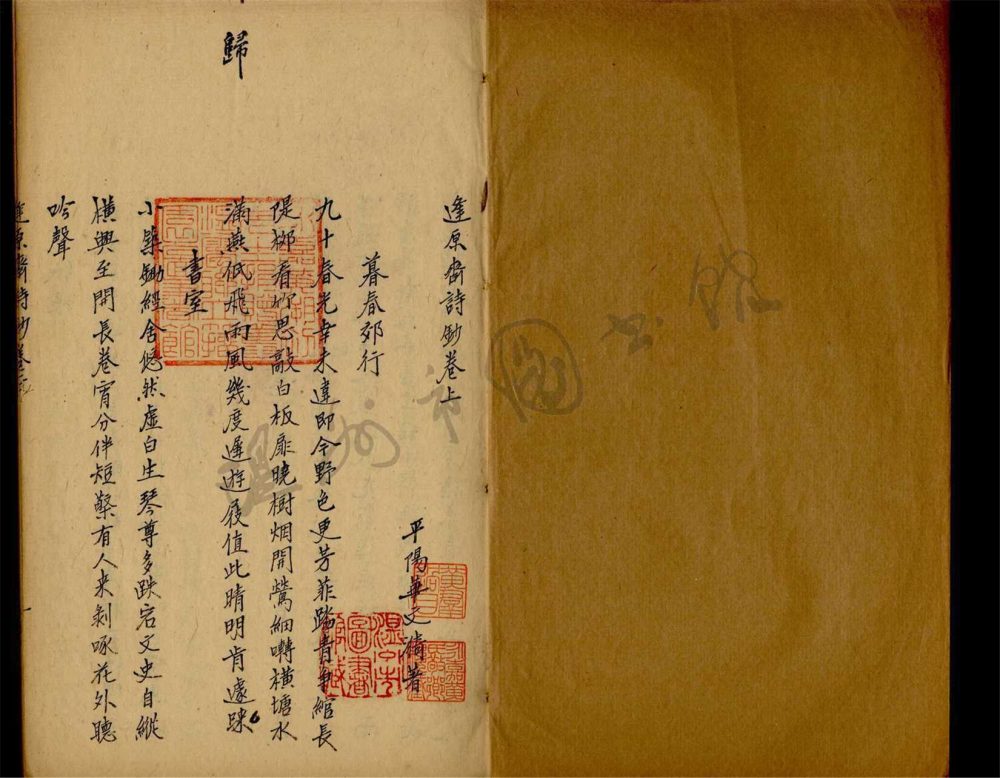 逢原齋詩鈔卷上
平陽華文漪著
暮春郊行
九十春光幸未違即今野色更芳菲踏青争綰長
隄栁看竹思敲白板扉曉樹烟開鶯細囀橫塘水
滿燕低飛雨風幾度遲遊屐值此晴明肯遽踈
歸
書室
小築鋤經舍悠然虛白生琴尊多跌宕文史自縱
橫興至開長卷宵分伴短檠有人来剝啄花外聽
吟聲
逢原齋詩鈔卷上
一
溫州市圖書館藏
溫州市圖書館